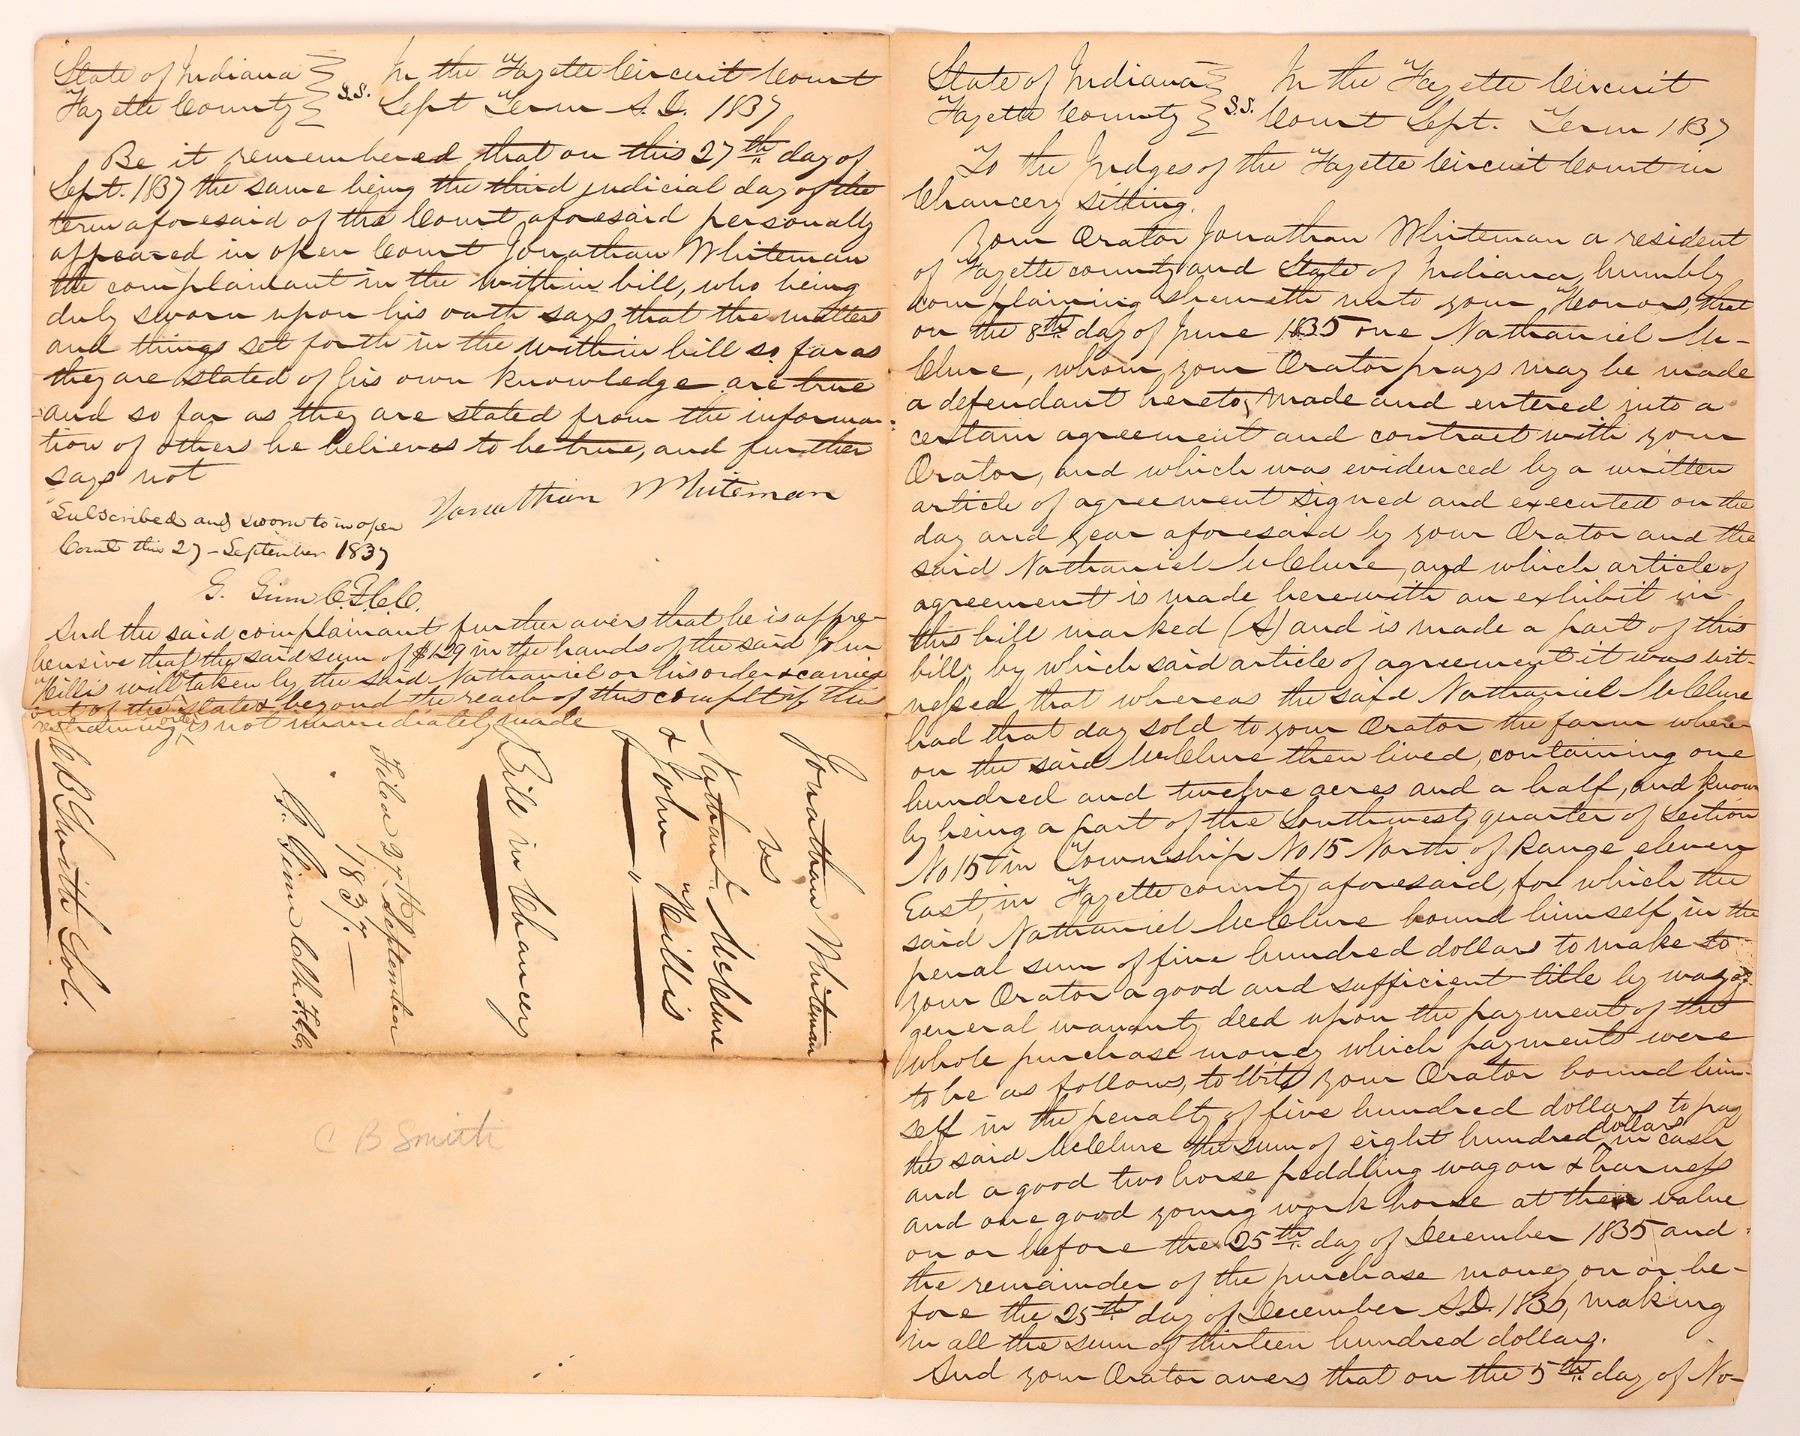 State of Indiana
Fayette County S.S. In the Fayette Circuit Court
Sept Term A.D. 1837
Be it remembered that on this 27th day of
Sept. 1837 the same being the third judicial day of the
term aforesaid of the Court aforesaid personally
appeared in open Court Jonathan Whiteman
the complainant in the within bill, who being
duly sworn upon his oath says that the matters
and things set forth in the within bill so far as
they are stated of his own knowledge are true
and so far as they are stated from the informa-
tion of others he believes to be true, and further
says not
Jonathan Whiteman
Subscribed and sworn to in open
Court this 27 - September 1837
G. Ginn C.F.C.C.
And the said complainant further avers that he is appre-
hensive that the said sum of $129 in the hands of the said John
Hillis will taken by the said Nathaniel or his order & carried
out of the state & beyond the reach of this complt if this
restraining order is not immediately made
Jonathan Whiteman
vs
Nathanl. McClure
& John Hillis
Bill in Chancery
Filed 27th September
1837.
G. Ginn Clk. F.C.C.
C B Smith Sol.
C B Smith
State of Indiana
Fayette County S.S. In the Fayette Circuit
Court Sept. Term 1837
To the Judges of the Fayette Circuit Court in
Chancery sitting.
Your Orator Jonathan Whiteman a resident
of Fayette county and State of Indiana, humbly
complaining sheweth unto your Honors, that
on the 8th day of June 1835 one Nathaniel Mc-
Clure, whom your Orator prays may be made
a defendant hereto, made and entered into a
certain agreement and contract with your
Orator, and which was evidenced by a written
article of agreement signed and executed on the
day and year aforesaid by your Orator and the
said Nathaniel McClure, and which article of
agreement is made herewith an exhibit in
this bill marked (A) and is made a part of this
bill, by which said article of agreement it was wit-
nessed, that whereas the said Nathaniel McClure
had that day sold to your Orator the farm where-
on the said McClure then lived, containing one
hundred and twelve acres and a half, and known
by being a part of the Southwest quarter of Section
No 15 in Township No 15 North of Range eleven
East, in Fayette county aforesaid, for which the
said Nathaniel McClure bound himself in the
penal sum of five hundred dollars to make to
your Orator a good and sufficient title by way of
general warranty deed upon the payment of the
whole purchase money which payments were
to be as follows, to Wit, your Orator bound him-
self in the penalty of five hundred dollars to pay
the said McClure the sum of eight hundred dollars in cash
and a good two horse peddling wagon & harness
and one good young work horse at their value
on or before the 25th day of December 1835 and
the remainder of the purchase money on or be-
fore the 25th day of December A.D. 1836, making
in all the sum of thirteen hundred dollars.
And your Orator avers that on the 5th day of No-